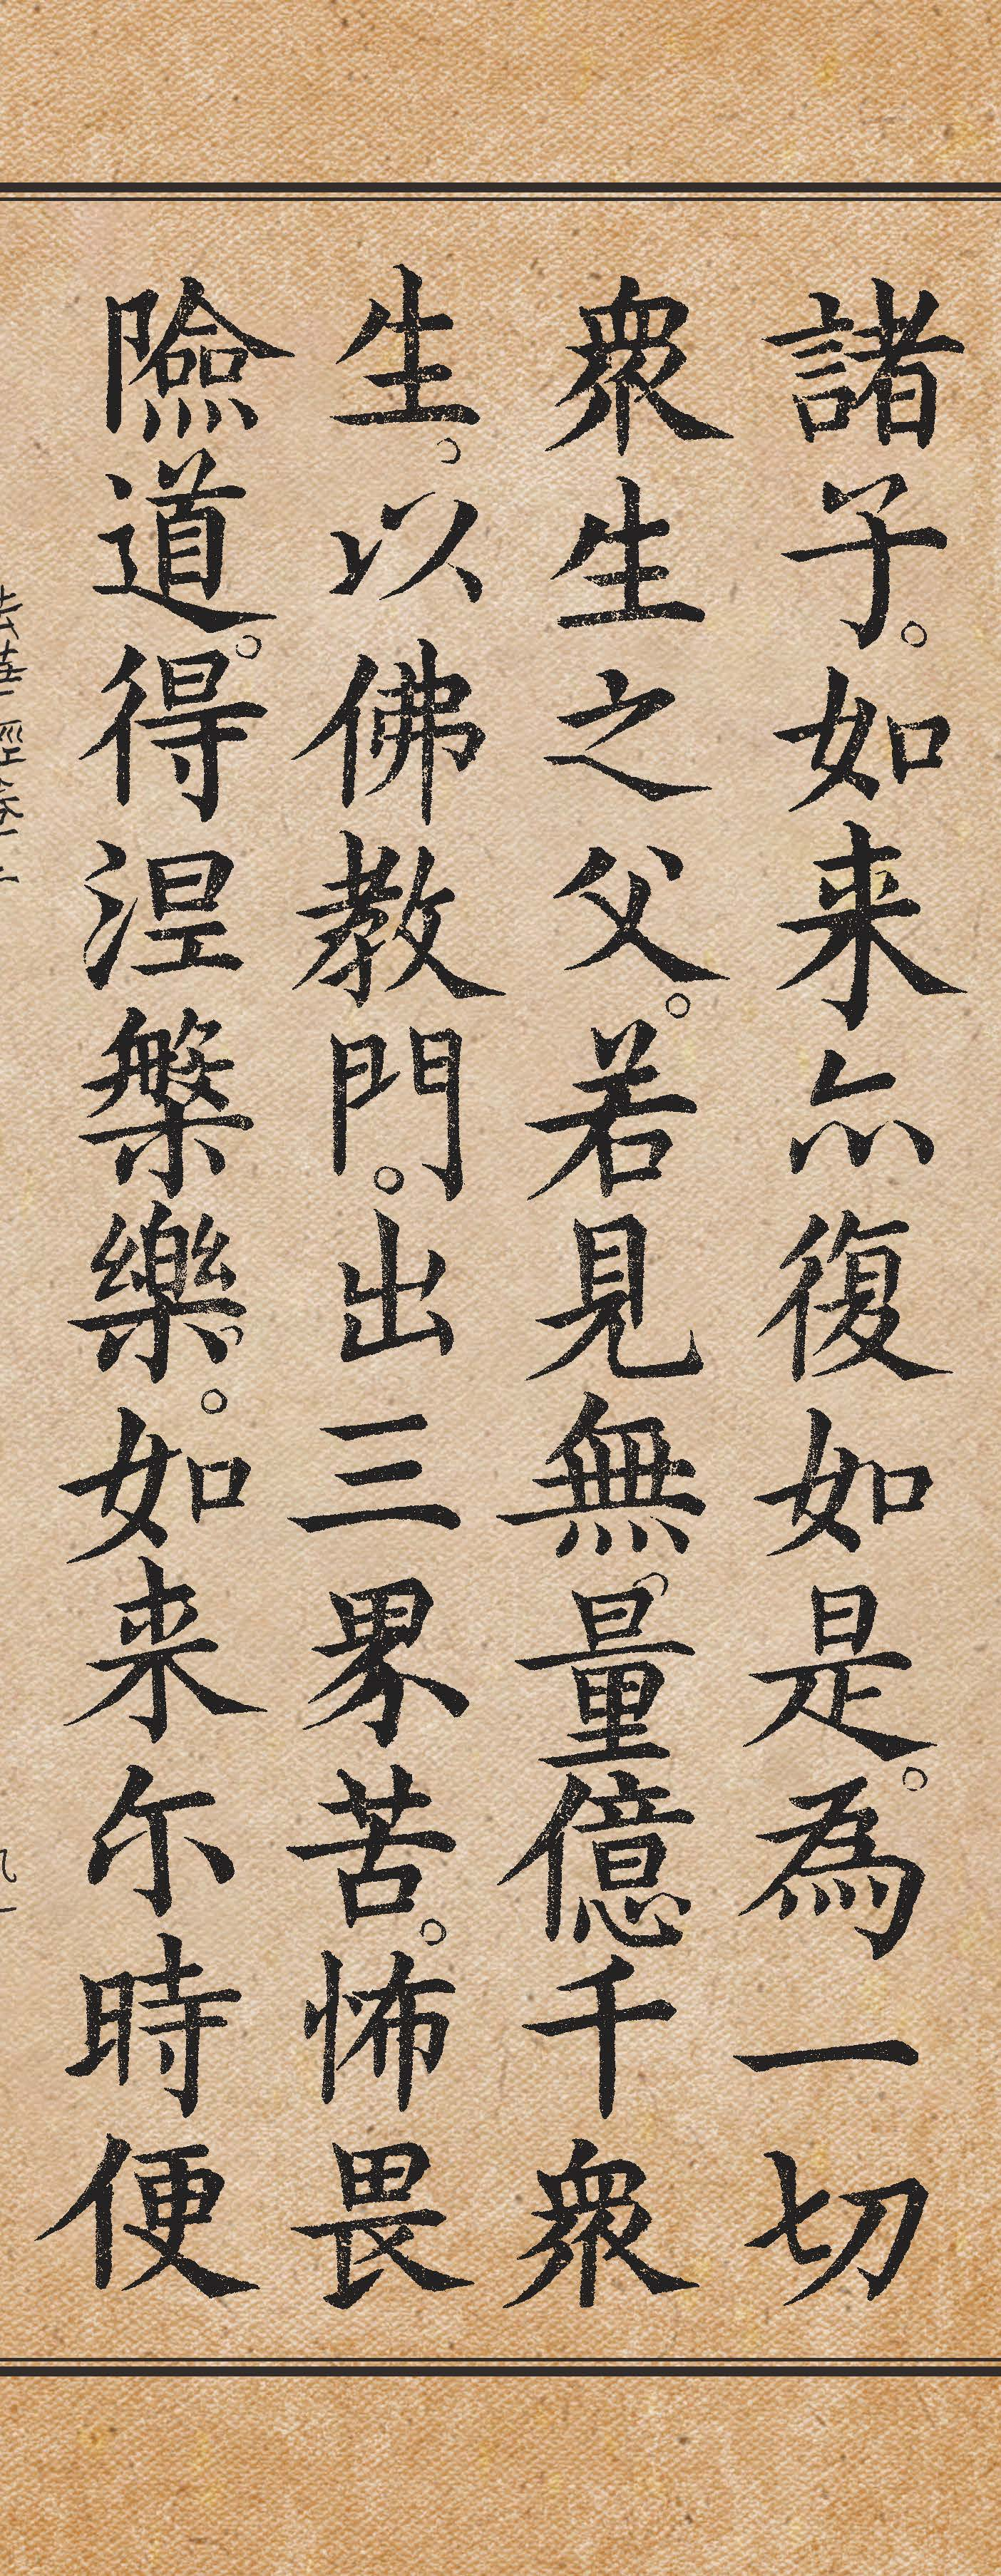 諸子。如来亦復如是。為一切
衆生之父。若見無量億千衆
生。以佛教門。出三界苦。怖畏
險道。得涅槃樂。如来尒時便